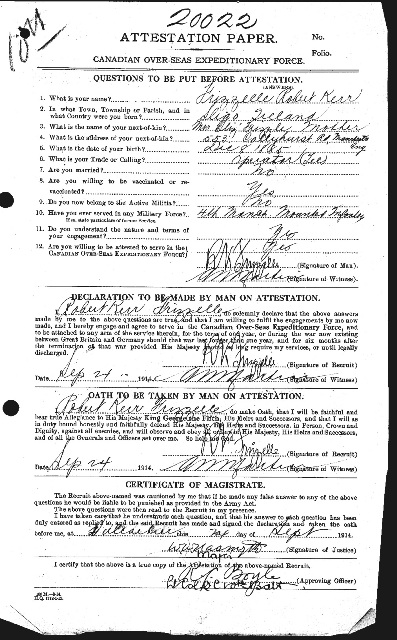 20022
ATTESTATION PAPER. No.
Folio.
CANADIAN OVER-SEAS EXPEDITIONARY FORCE.
QUESTIONS TO BE PUT BEFORE ATTESTATION.
(ANSWERS)
1. What is your name? Frizzelle Robert Kerr
2. In what Town, Township or Parish, and in
what Country were you born? Sligo Ireland
3. What is the name of your next-of-kin? Frizzelle Mother
4. What is the address of your next-of-kin? Rd
5. What is the date of your birth? Dec 8
6. What is your Trade or Calling? Operator
7. Are you married? no
8. Are you willing to be vaccinated or re-
vaccinated? Yes
9. Do you now belong to the Active Militia? no
10. Have you ever served in any Military Force? 4th Manch. Mounted Infantry
If so, state particulars of former Service.
11. Do you understand the nature and terms of
your engagement? Yes
12. Are you willing to be attested to serve in the
CANADIAN OVER-SEAS EXPEDITIONARY FORCE? Yes
R K Frizzelle (Signature of Man).
(Signature of Witness)
DECLARATION TO BE MADE BY MAN ON ATTESTATION.
I, Robert Kerr Frizzelle, do solemnly declare that the above answers
made by me to the above questions are true, and that I am willing to fulfil the engagements by me now
made, and I hereby engage and agree to serve in the Canadian Over-Seas Expeditionary Force, and
to be attached to any arm of the service therein, for the term of one year, or during the war now existing
between Great Britain and Germany should that war last longer than one year, and for six months after
the termination of that war provided His Majesty should so long require my services, or until legally
discharged.
R K Frizzelle (Signature of Recruit)
Date Sep 24 1914. (Signature of Witness)
OATH TO BE TAKEN BY MAN ON ATTESTATION.
I, Robert Kerr Frizzelle, do make Oath, that I will be faithful and
bear true Allegiance to His Majesty King George the Fifth, His Heirs and Successors, and that I will as
in duty bound honestly and faithfully defend His Majesty, His Heirs and Successors, in Person, Crown and
Dignity, against all enemies, and will observe and obey all orders of His Majesty, His Heirs and Successors,
and of all the Generals and Officers set over me. So help me God.
R K Frizzelle (Signature of Recruit)
Date Sep 24 1914. (Signature of Witness)
CERTIFICATE OF MAGISTRATE.
The Recruit above-named was cautioned by me that if he made any false answer to any of the above
questions he would be liable to be punished as provided in the Army Act.
The above questions were then read to the Recruit in my presence.
I have taken care that he understands each question, and that his answer to each question has been
duly entered as replied to, and the said Recruit has made and signed the declaration and taken the oath
before me, at Valcartier this day of Sept 1914.
(Signature of Justice)
Major
I certify that the above is a true copy of the Attestation of the above-named Recruit.
Boyle
(Approving Officer)